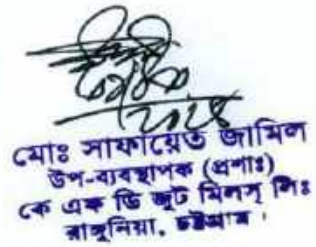 মোঃ সাফায়েত জামিল
উপ-ব্যবস্থাপক (প্রশাঃ)
কে এফ ডি জুট মিলস্ লিঃ
রাঙ্গুনিয়া, চট্টগ্রাম।